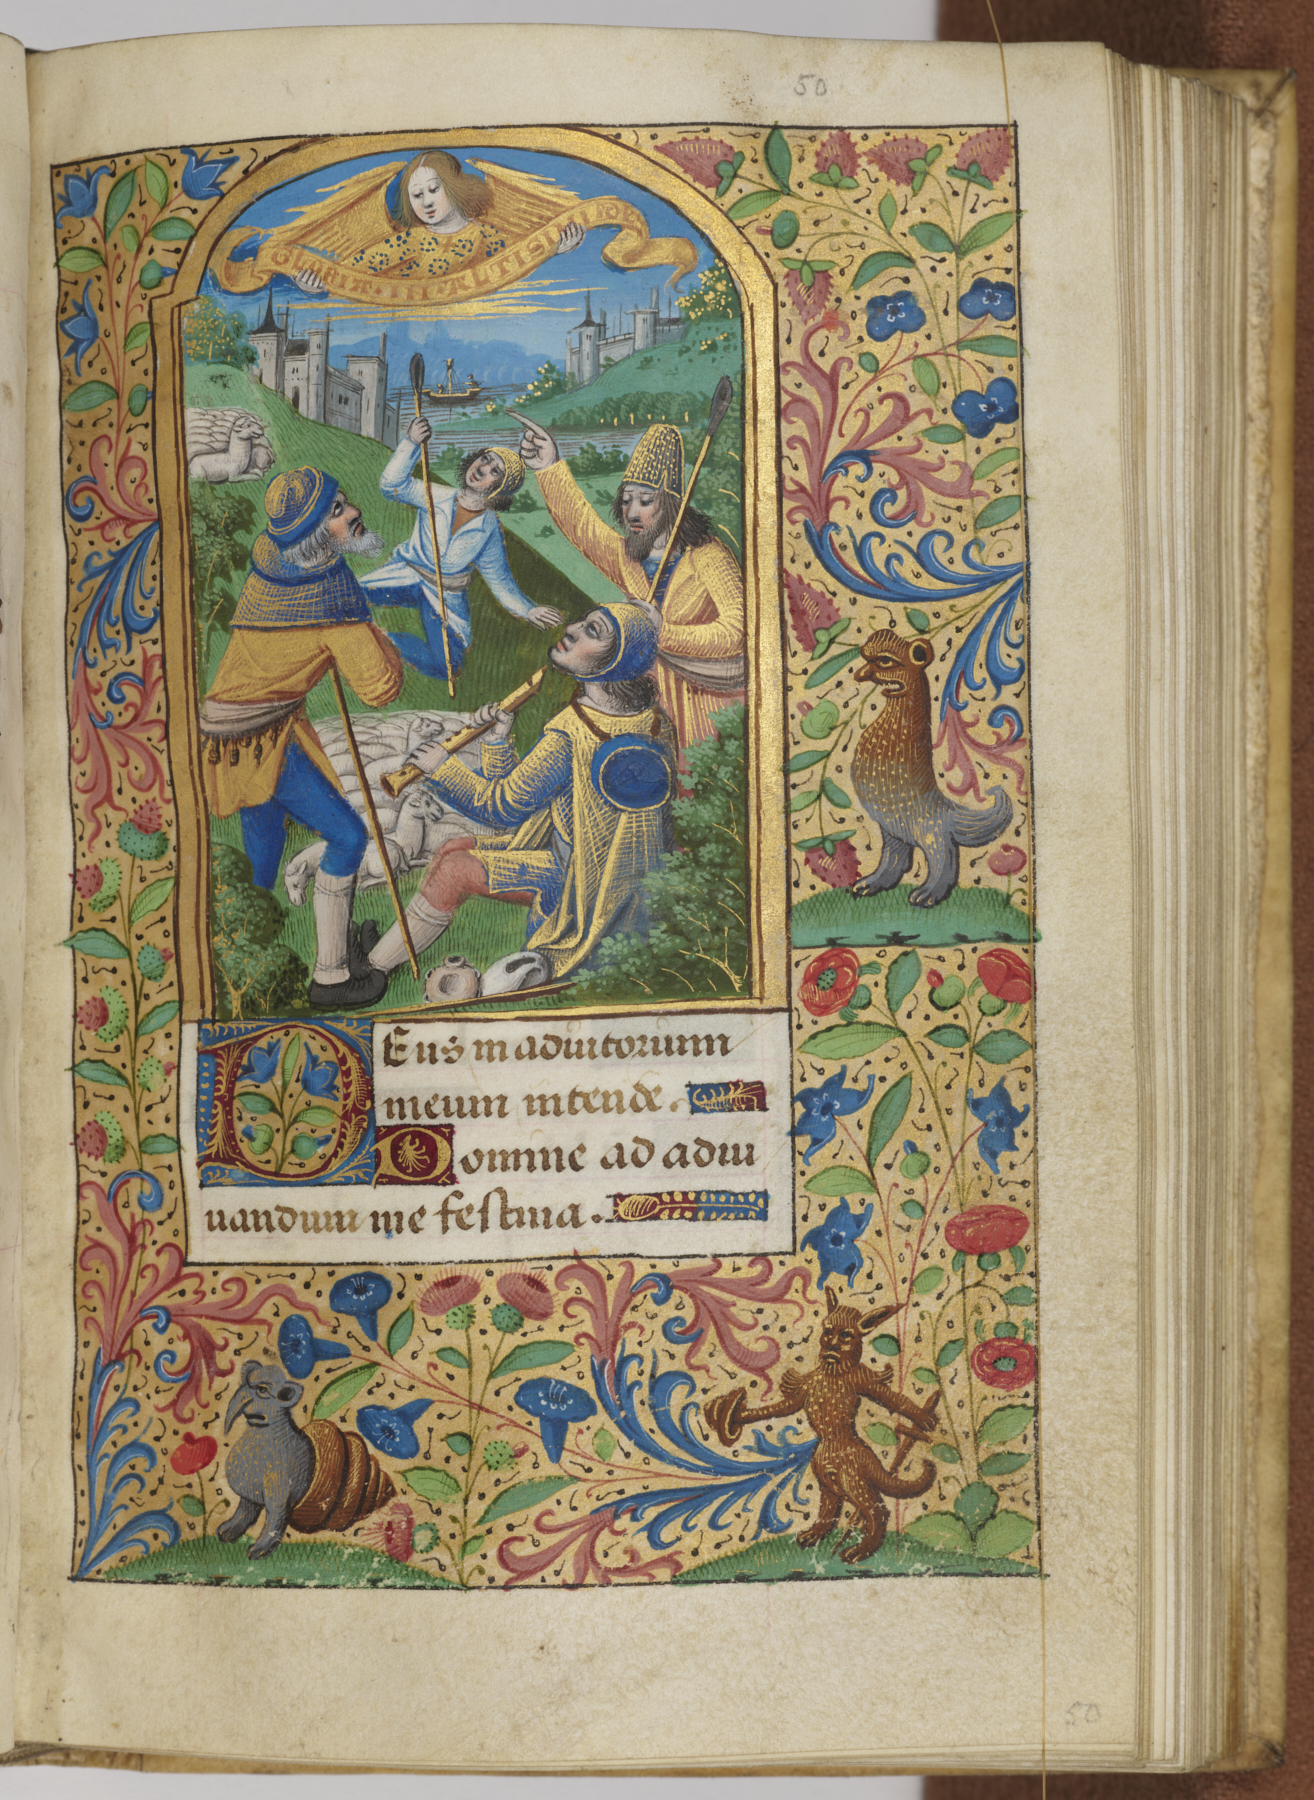 50
GLORIA·IN·ALTISSIMIS
Deus in adiutorium
meum intende.
Domine ad adiu
uandum me festina.
50